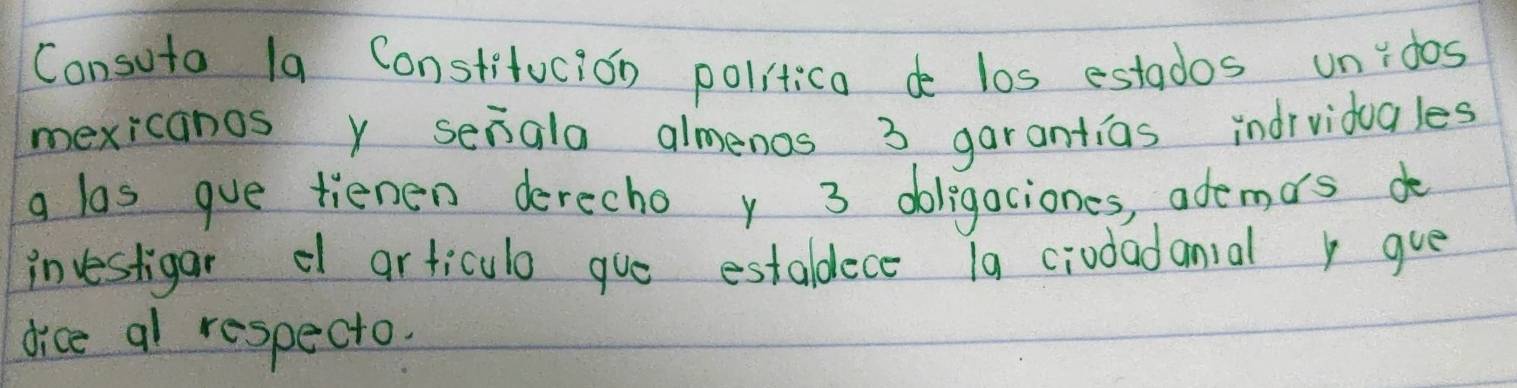 Consuta la Constitución política de los estados unidos
mexicanos y señala almenos 3 garantías individuales
a las que tienen derecho y 3 obligaciones, además de
investigar el articulo que estabdece la ciudadanial y que
dice al respecto.